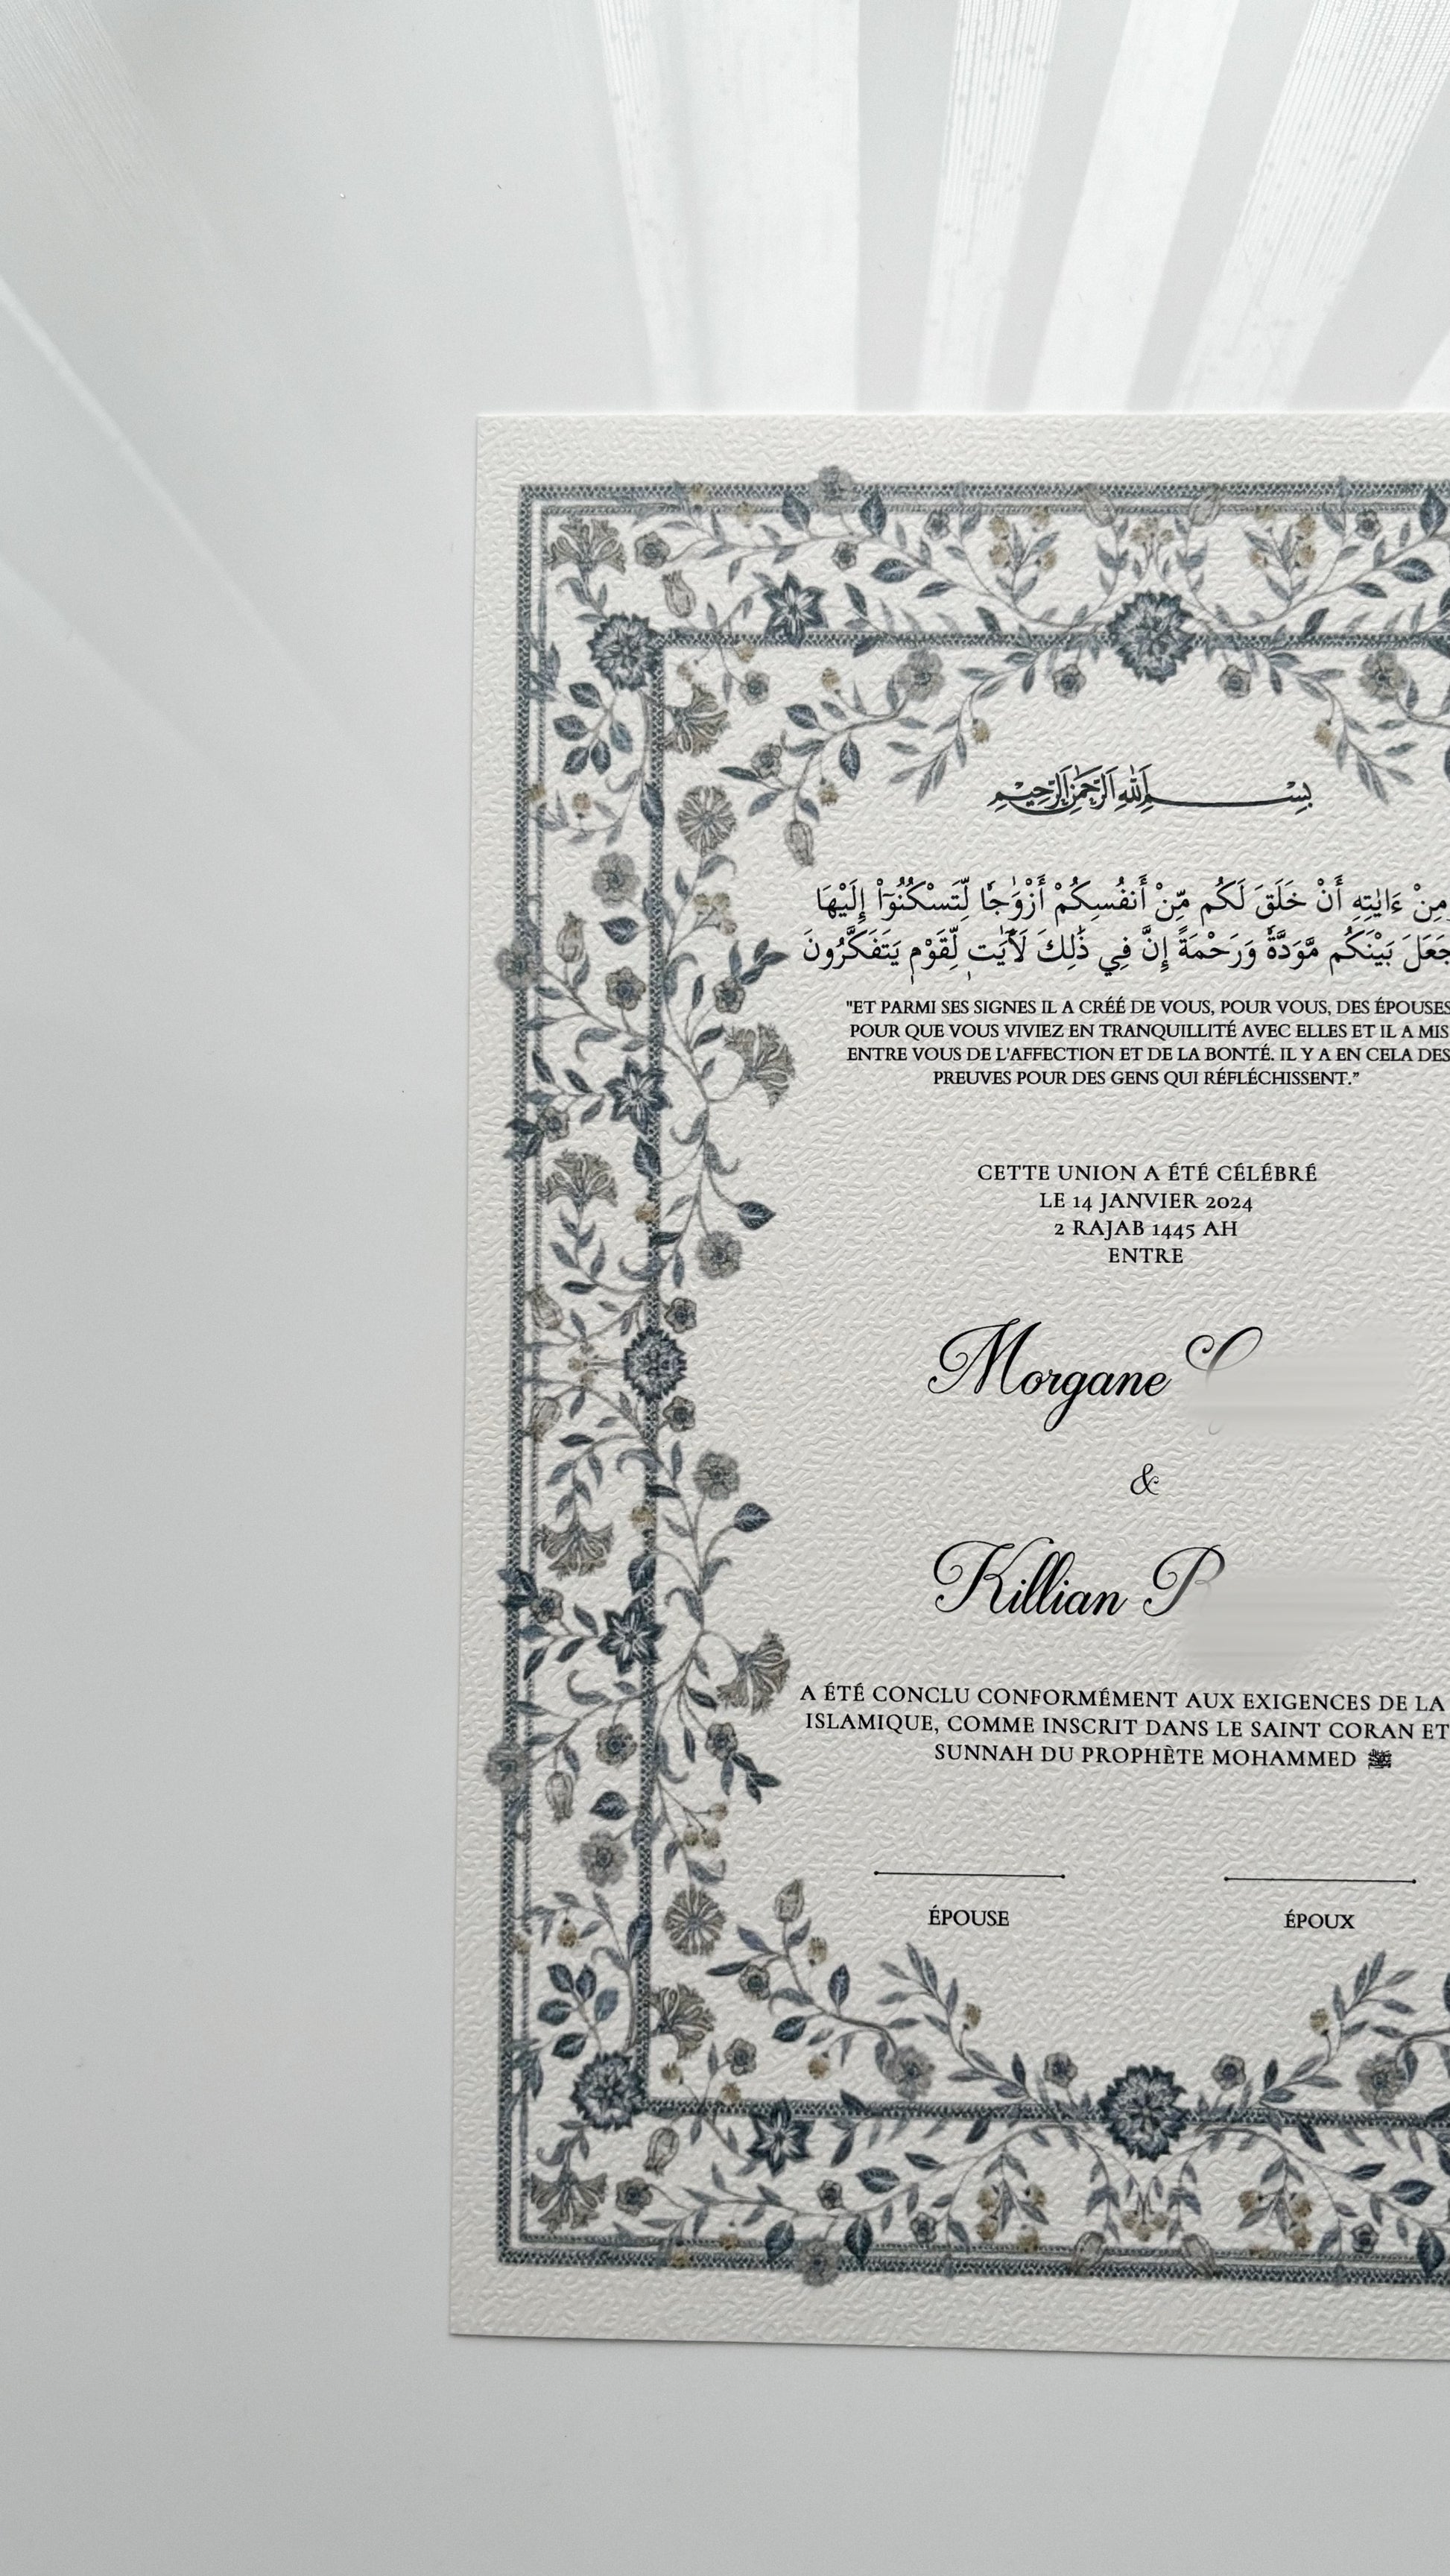 بسم الله الرحمن الرحيم
مِنْ ءَايَٰتِهِ أَنْ خَلَقَ لَكُم مِّنْ أَنفُسِكُمْ أَزْوَٰجًا لِّتَسْكُنُوٓا۟ إِلَيْهَا
جَعَلَ بَيْنَكُم مَّوَدَّةً وَرَحْمَةً إِنَّ فِي ذَٰلِكَ لَأَيَٰتٍ لِّقَوْمٍ يَتَفَكَّرُونَ
"ET PARMI SES SIGNES IL A CRÉÉ DE VOUS, POUR VOUS, DES ÉPOUSES
POUR QUE VOUS VIVIEZ EN TRANQUILLITÉ AVEC ELLES ET IL A MIS
ENTRE VOUS DE L'AFFECTION ET DE LA BONTÉ. IL Y A EN CELA DES
PREUVES POUR DES GENS QUI RÉFLÉCHISSENT.”
CETTE UNION A ÉTÉ CÉLÉBRÉ
LE 14 JANVIER 2024
2 RAJAB 1445 AH
ENTRE
Morgane
&
Killian P
A ÉTÉ CONCLU CONFORMÉMENT AUX EXIGENCES DE LA
ISLAMIQUE, COMME INSCRIT DANS LE SAINT CORAN ET
SUNNAH DU PROPHÈTE MOHAMMED ﷺ
ÉPOUSE
ÉPOUX